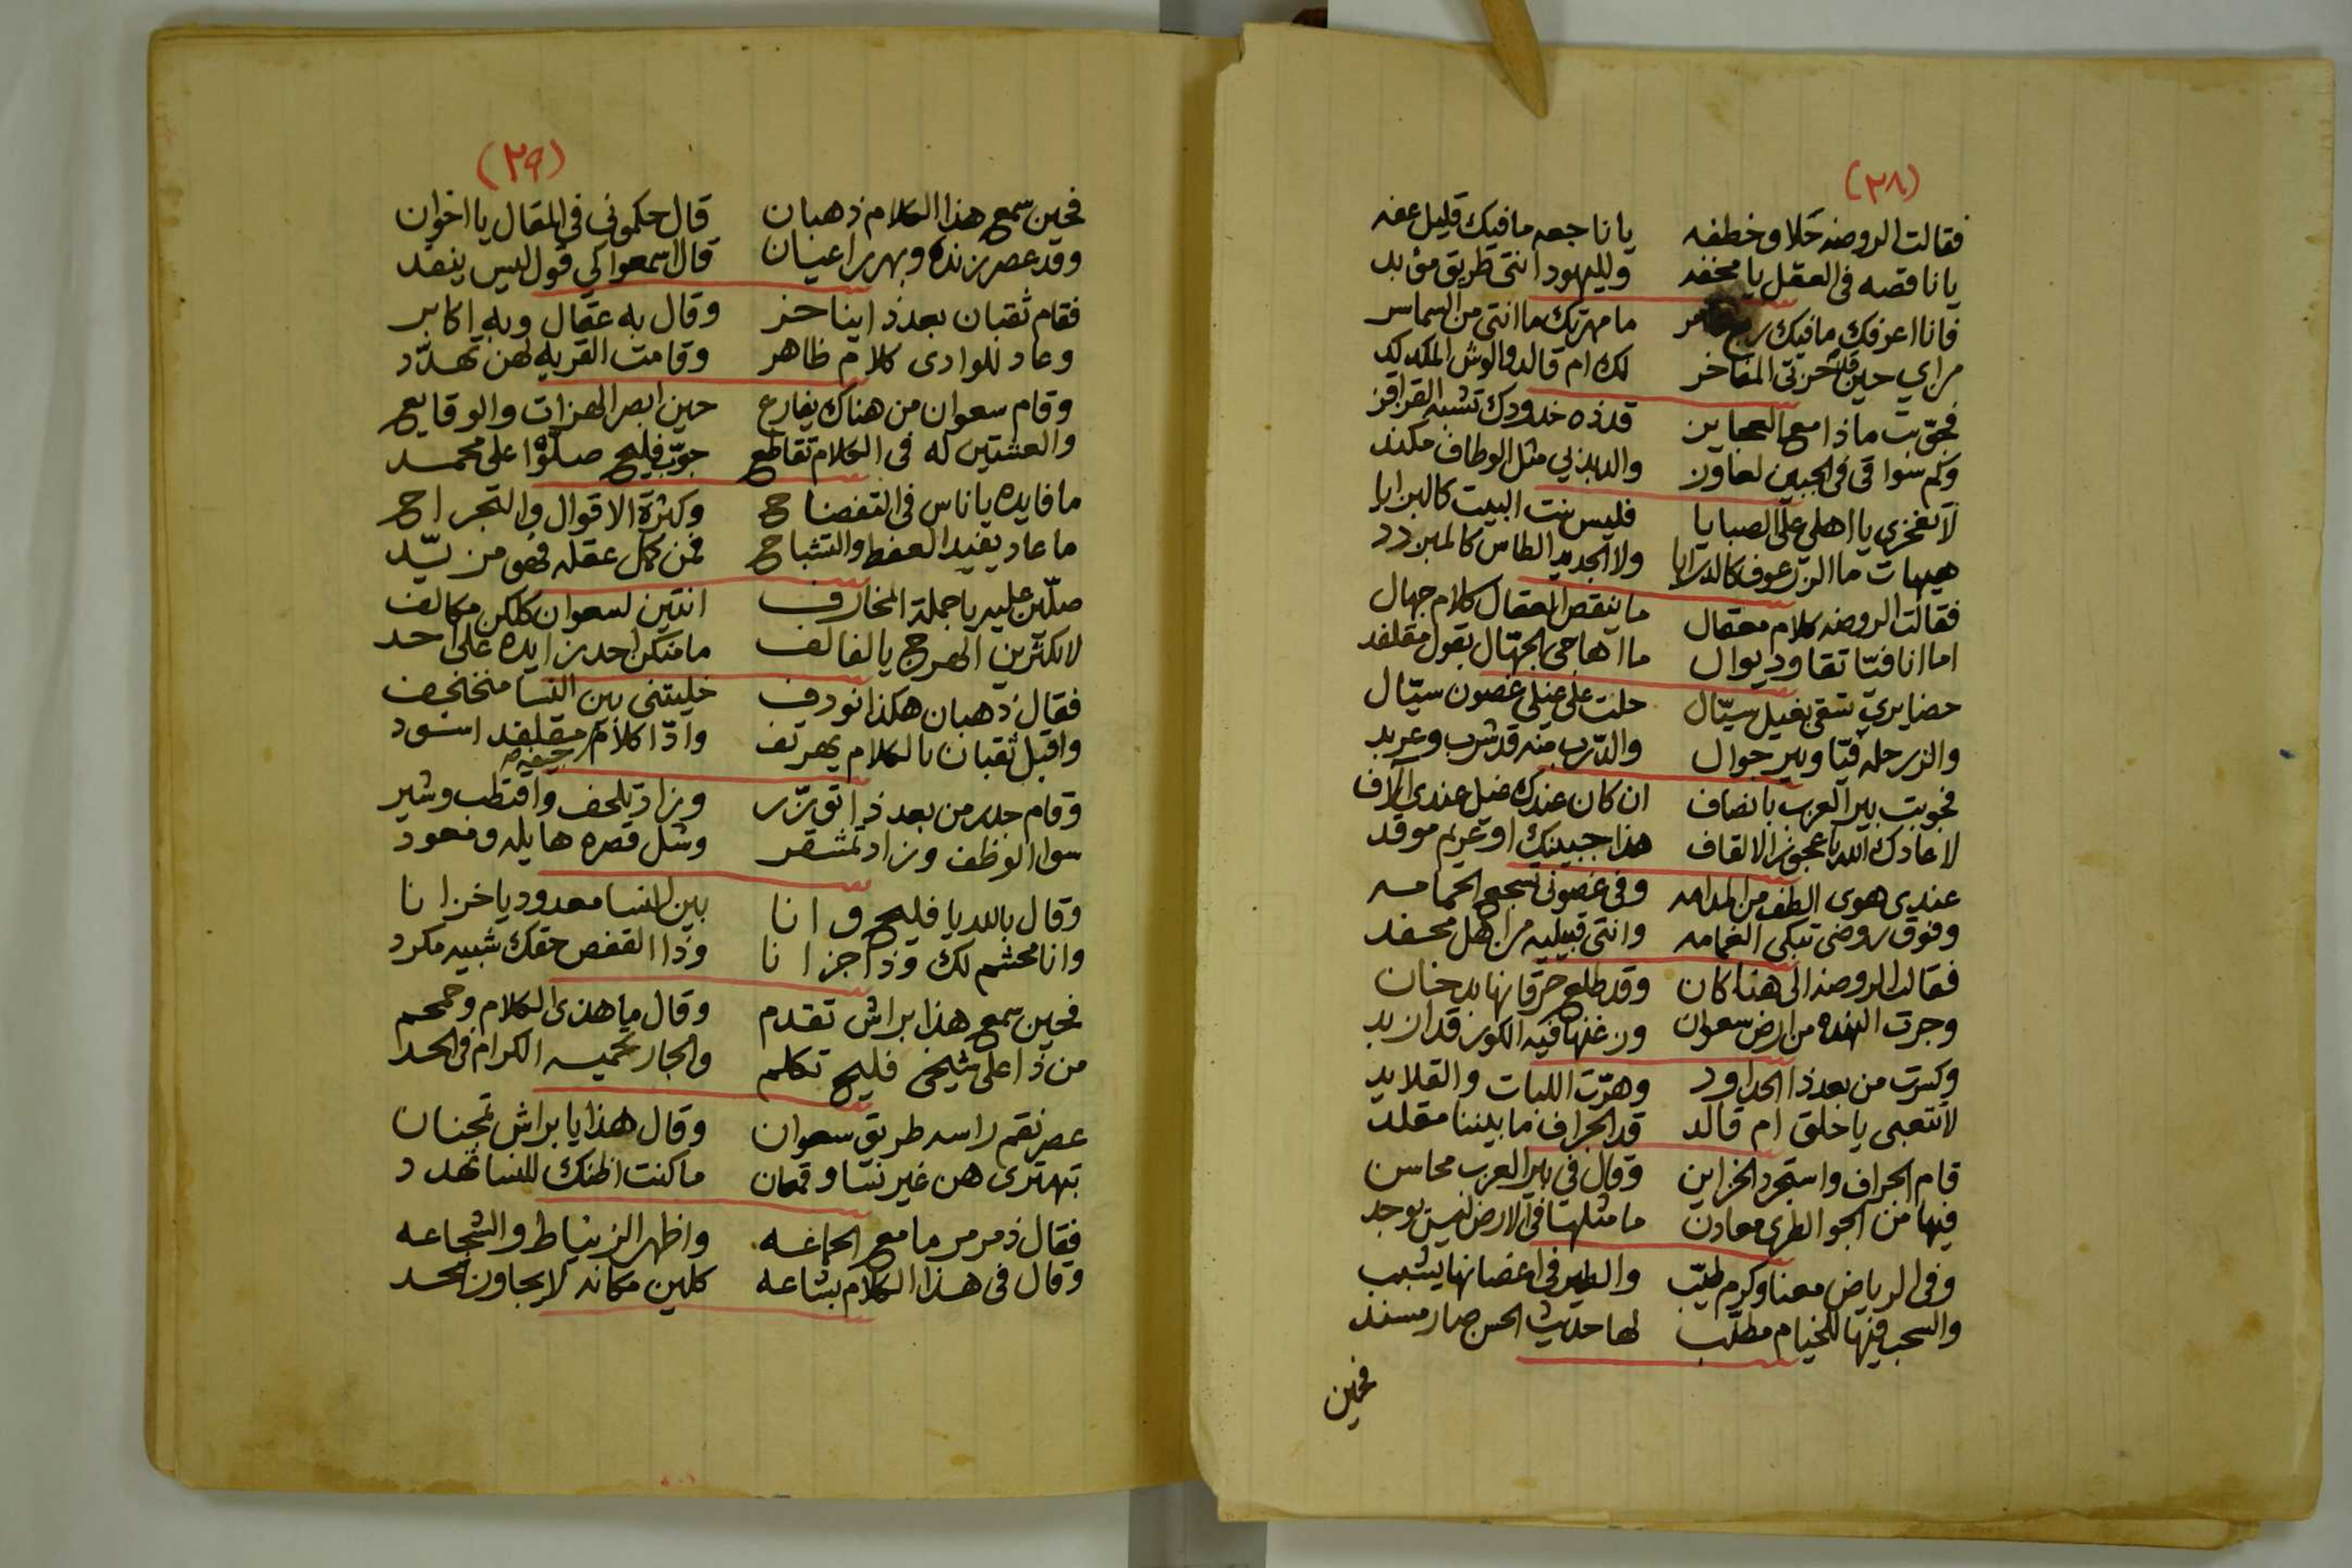 (٢٨)
فقالت الروضه حلا وخطفه يا ناجعه مافيك قليل عفه
يا ناقصه في العقل يا مخففه ولليهود انتي طريق مؤبد
فانا اعرفك مافيك ما مهرتك ما انتي من السماسر
حين حزتي المفاخر لك ام قالد والوش المكدكد
فجوّبت ماذا مع العجاين قدذه خدودك تشبه القراقز
وكم سواقي في الجبين لعاون مثل الوطاف مكند
لا تفخري يا اهلي على الصبايا فليس بنت البيت كالبرايا
هيهات ما الزرعوف كالدرايا ولا الجديد الطاس كالمبردد
فقالت الروضه كلام معقال ما ينقص العقال كلام جهال
اما انا فتا تقاود يوال ما اهاجي الجهّال بقول مقلفد
حضايري تسقي بغيل سيّال حلت على غيلي غصون سيّال
والزرحله وبير جوال والدّرب منه قد شرب وعربد
فجوبت بير العرب بانصاف ان كان عندك غيل عندي آلاف
لا عادك الله يا عجوز الالقاف هذا جبينك او غريم موقد
عندي هوى الطف من المدامه وفي غصوني تسجع الحمامه
وفوق روضي تبكي الغمامه وانتي قبيليه من اهل محفد
فقالت الروضه الى هنا كان وقد طلع حرقانها بدخنان
وجرت الهنده من ارض سعوان قد ازبد
وكسرت من بعد ذا الحداود وهرّت اللبات والقلايد
لا تتعبي يا خلق ام قالد قد الجراف ما بيننا مقلد
قام الجراف واستجرد الخزاين وقال في بير العرب محاسن
فيها من الجو الطري معادن ما مثلها في الارض ليس يوجد
وفي الرياض معنا وكرم طيّب والطير في اغصانها يشبب
والسحب فيها للخيام مطلّب لها حديث الحسن صار مسند
فحين
(٢٩)
فحين سمع هذا الكلام ذهبان قال حكموني في المقال يا اخوان
وقد عصر زنده وبهرر اعيان قال اسمعوا لي قول ليس ينقد
فقام ثقبان بعد ذا يناخر وقال به عقال وبه اكابر
وعاد للوادي كلام ظاهر وقامت القريه لهن تهدّد
وقام سعوان من هناك يفارع حين ابصر الهزات والوقايع
والعشتين له في الكلام تقاطع جوّب فليح صلّوا على محمد
ما فايده يا ناس في التفضاح وكثرة الاقوال والتجراح
ما عاد يفيد العفط والتشباح فمن كمل عقله فهو من سيّد
صلّين عليه يا جملة المخارف انتين لسعوان كلكن مكالف
لا تكثرين الهرج يا لفالف ما منكن احد زايده على احد
فقال ذهبان هكذا نودف خليتني بين النسا منخنخف
واقبل ثقبان بالكلام يهرتف وا ذا كلام مقلفد اسود
وقام حدر من بعد ذا تورّر وزاد تلحف واقتطب وشير
سوا الوظف وزاد تمشقر وشل قصره هايله ومعود
وقال بالله يا فليح وانا بين النسا معدود يا خزانا
وانا محشم لك وذا جزانا وذا القفص حقك شبيه مكرد
فحين سمع هذا براش تقدم وقال ما هذي الكلام وحمحم
من ذا على شيخي فليح تكلم والجار تحميه الكرام في الحد
عصر نقم راسه طريق سعوان وقال هذا يا براش تجنان
تهتري هن غير نسا وقمان ما كنت اظنك للنسا تهدد
فقال ذمرمر ما مع الجاغه واظهر الزنياط والشجاعه
وقال في هذا الكلام بشاعه كلمين مكانه لا يجاوز الحد